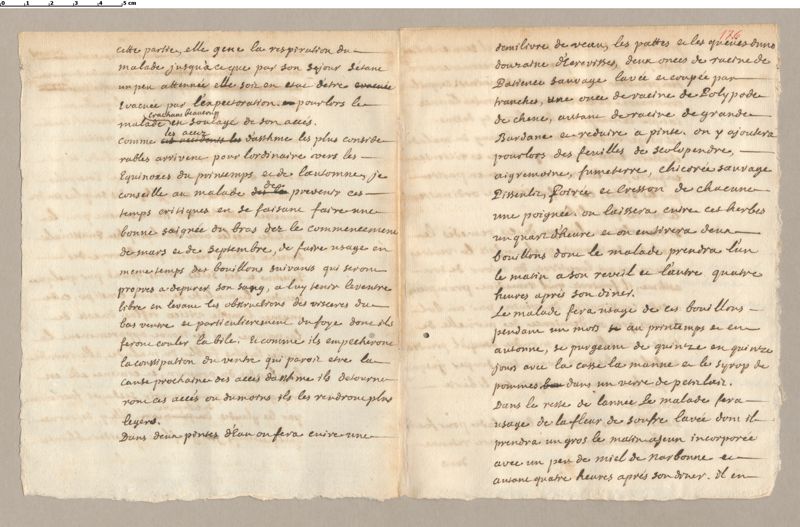 cette partie, elle gene la respiration du
malade jusqu'a ce que par son sejour s'etant
un peu attenuée elle soit en etat d'etre evacuée
Evacuée par l'expectoration. en pourlors le
crachant beaucoup
malade est soulagé de son accés.
les accez
Comme ces accidents les d'asthme les plus conside
rables arrivent pour l'ordinaire vers les
Equinoxes du printemps et de l'automne, je
conseille au malade de prevenir ces
temps critiques en se faisant faire une
bonne saignée du bras dez le commencement
de mars et de septembre, de faire usage en
meme temps des bouillons suivants qui seront
propres a depurer son sang, a luy tenir le ventre
libre en levant les obstructions des visceres du
bas ventre et particulierement du foye dont ils
feront couler la bile. Et comme ils empecheront
la constipation du ventre qui paroit etre la
cause prochaine des acces d'asthme ils detourne
ront ces accés ou du moins ils les rendront plus
legers.
Dans deux pintes d'Eau on fera cuire une
176
demi livre de veau, les pattes et les queues d'une
douzaine d'Ecrevisses, deux onces de racine de
Patience sauvage lavée et coupée par
tranches, une once de racine de Polypode
de chene, autant de racine de grande
Bardane et reduire a pinte. on y ajoutera
pourlors des feuilles de scolopendre,
aigremoine, fumeterre, chicorée sauvage
Pissenlit, Poirée et Cresson de chacune
une poignée. on laissera cuire ces herbes
un quart d'heure et on en tirera deux
bouillons dont le malade prendra l'un
le matin a son reveil et l'autre quatre
heures aprés son diner.
Le malade fera usage de ces bouillons
pendant un mois au printemps et en
automne, se purgeant de quinze en quinze
jours avec la casse la manne et le syrop de
pommes dans un verre de petit lait.
Dans le reste de l'année Le malade fera
usage de la fleur de soufre lavée dont il
prendra un gros le matin a jeun incorporée
avec un peu de miel de Narbonne et
autant quatre heures aprés son diner. il en